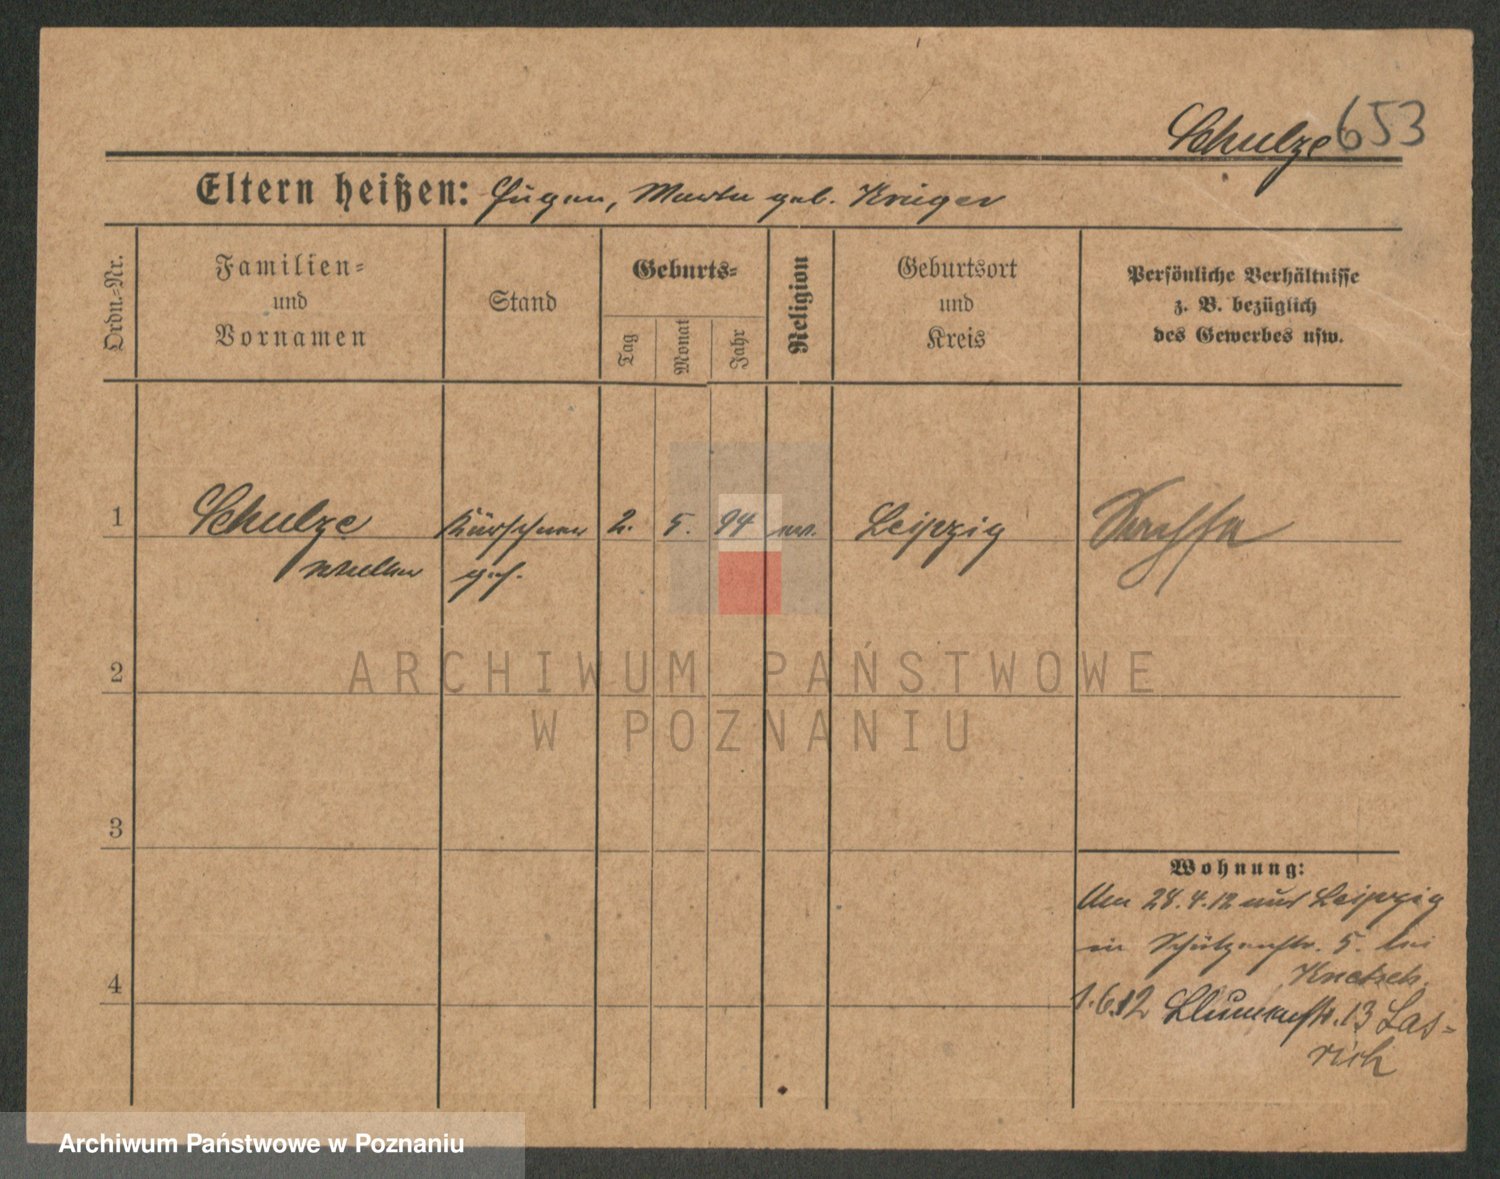 Schulze 653
Eltern heißen: Eugen, Marta geb. Krüger
Ordn.-Nr.
Familien-
und
Vornamen
Stand
Geburts-
Tag
Monat
Jahr
Religion
Geburtsort
und
Kreis
Persönliche Verhältnisse
z. B. bezüglich
des Gewerbes usw.
1 Schulze Kürschner 2. 5. 94 ev. Leipzig
geh.
2
3
4
Wohnung:
Am 28.4.12 aus Leipzig
in Schützenstr. 5. bei
1.6.12 Blumenstr. 13 Las-
rich
ARCHIWUM PAŃSTWOWE
W POZNANIU
Archiwum Państwowe w Poznaniu